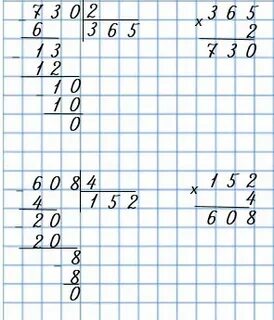 - 730 | 2
6 | 365
- 13
12
- 10
10
0
× 365
2
730
- 608 | 4
4 | 152
- 20
20
- 8
8
0
× 152
4
608